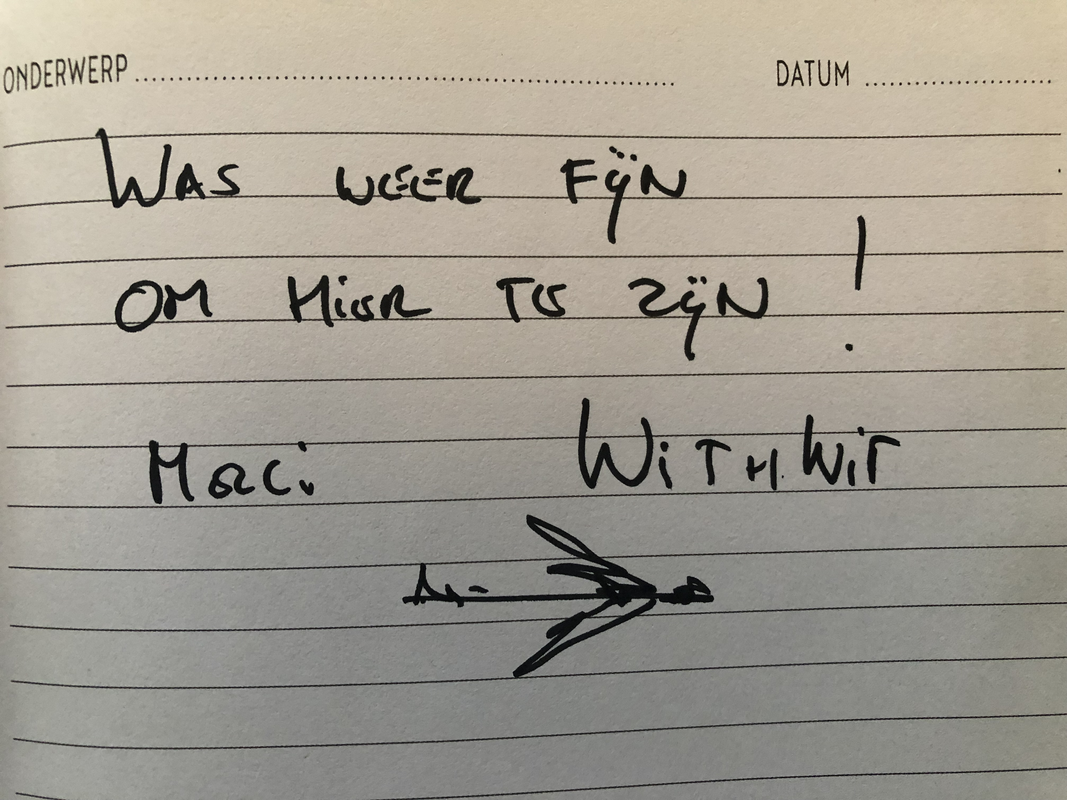 ONDERWERP DATUM
WAS WEER FÿN
OM HiER TE ZÿN !
MERCi WiTH.WiT